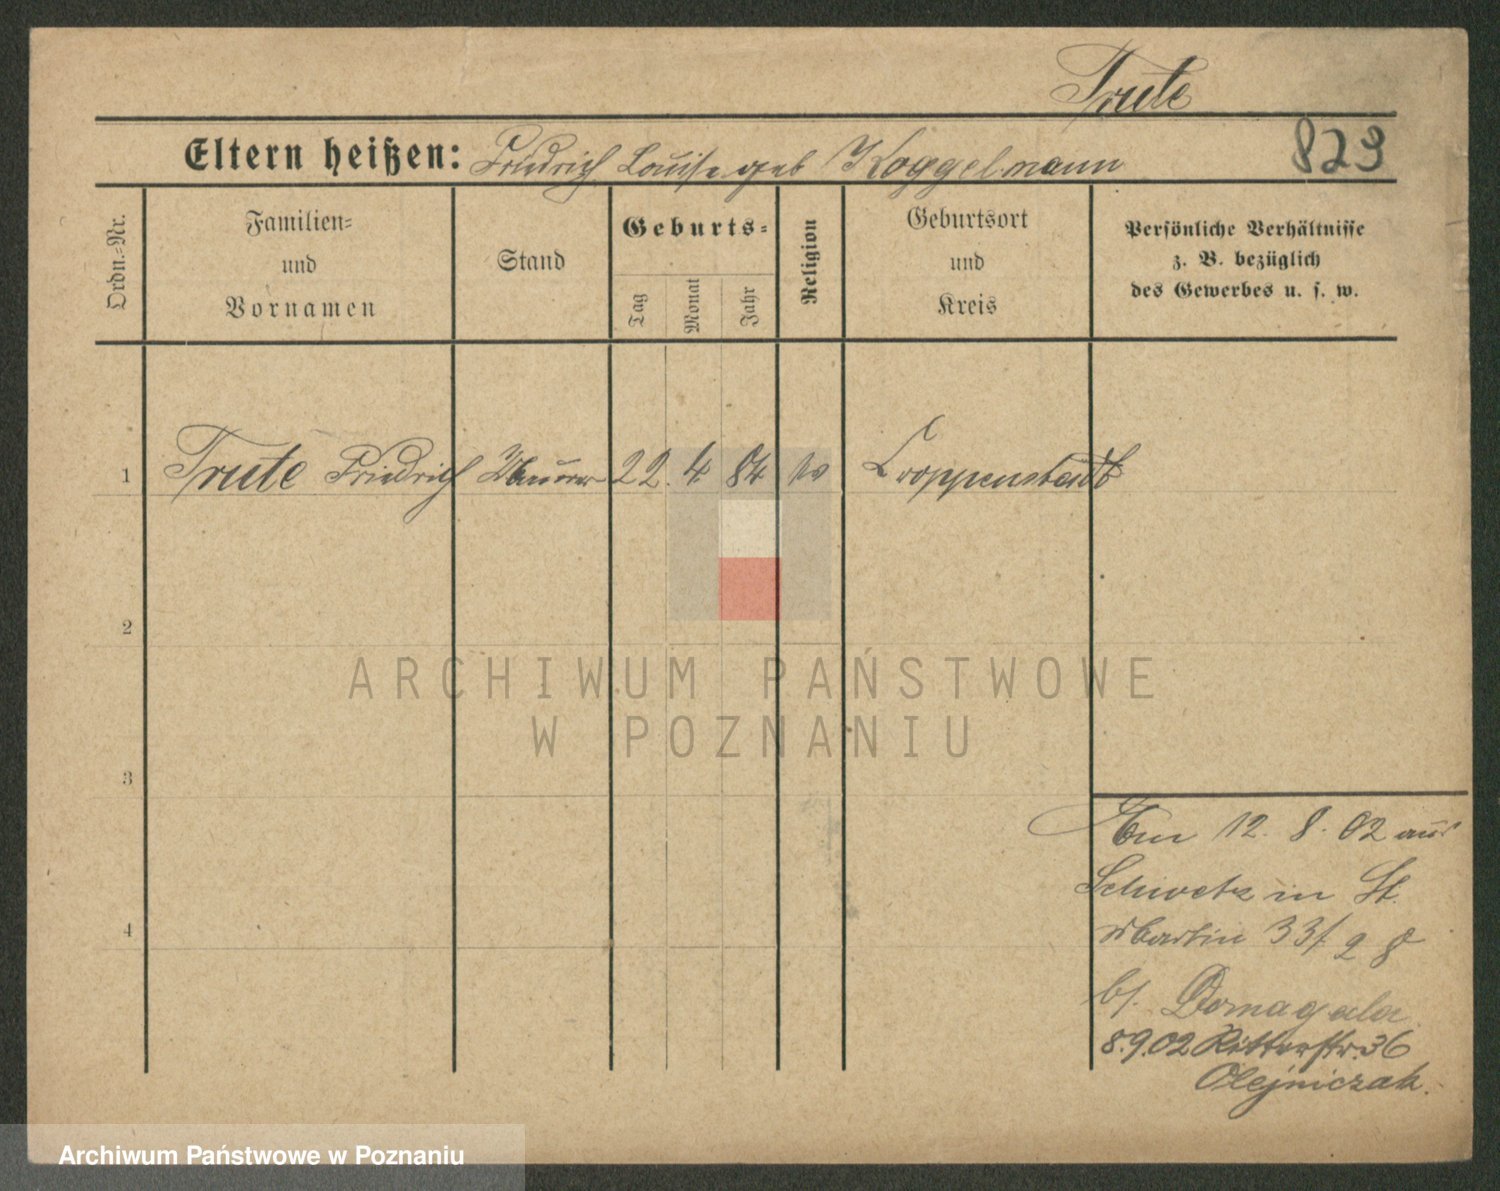 Trute
Eltern heißen: Friedrich Louise geb Koggelmann
823
Ordn.-Nr.
Familien-
und
Vornamen
Stand
Geburts-
Tag
Monat
Jahr
Religion
Geburtsort
und
Kreis
Persönliche Verhältnisse
z. B. bezüglich
des Gewerbes u. s. w.
1 Trute Friedrich Maurer 22. 4 84 Croppenstedt
2
3
4
ARCHIWUM PAŃSTWOWE
W POZNANIU
Am 12. 8. 02 aus
Schwetz in St.
Martin 33/
b/. Domagala
8.9.02 Ritterstr. 36
Olejniczak.
Archiwum Państwowe w Poznaniu